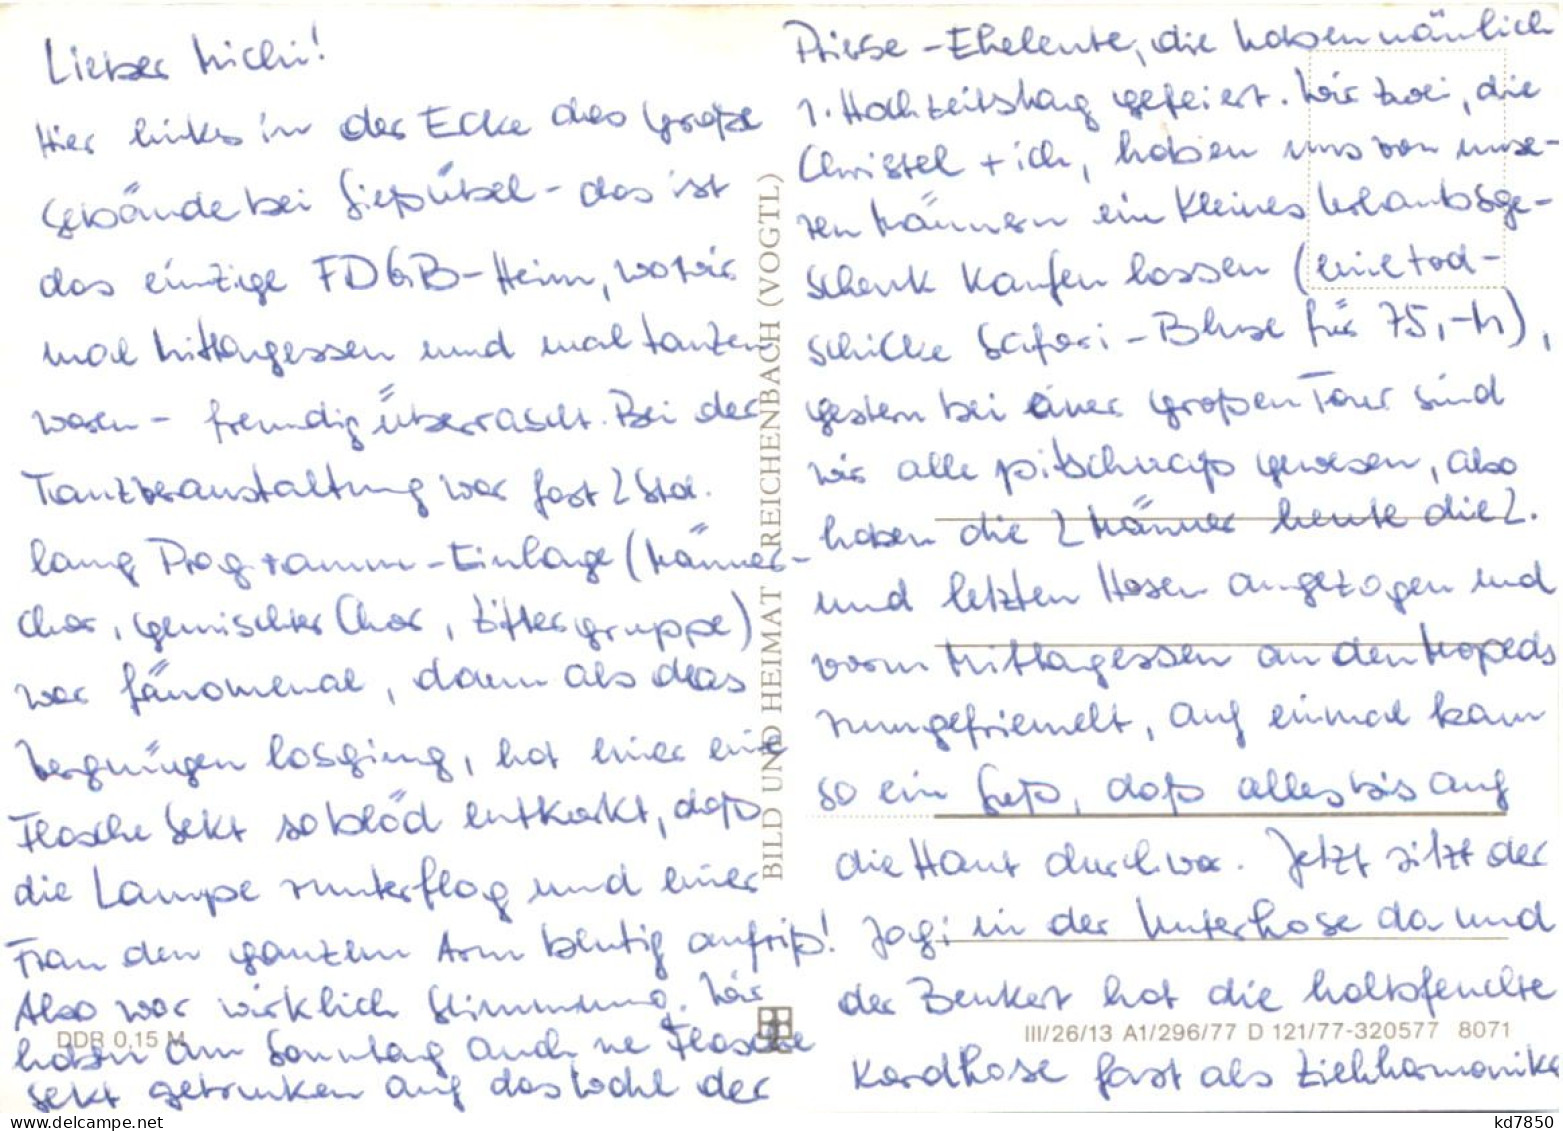 Lieber Michi!
Hier links in der Ecke das große
Gebäude bei Gießübel - das ist
das einzige FDGB-Heim, wo wir
mal Mittagessen und mal tanzen
waren - freundig überrascht. Bei der
Tanzveranstaltung war fast 2 Std.
lang Programm-Einlage (Männer-
chor, gemischter Chor, Zittergruppe)
war fänomenal, dann als das
Vergnügen losging, hat einer eine
Flasche Sekt so blöd entkorkt, daß
die Lampe runterflog und einer
Frau den ganzen Arm blutig aufriß!
Also war wirklich Stimmung. Wir
haben am Sonntag auch ne Flasche
Sekt getrunken auf das Wohl der
Priese-Eheleute, die haben nämlich
1. Hochzeitstag gefeiert. Wir zwei, die
Christel + ich, haben uns von unse-
ren Männern ein kleines Urlaubsge-
schenk kaufen lassen (eine tod-
schicke Safari-Bluse für 75,-M),
gestern bei einer großen Tour sind
wir alle pitschnaß gewesen, also
haben die 2 Männer heute die 2.
und letzten Hosen angezogen und
vorm Mittagessen an den Mopeds
rumgefriemelt, auf einmal kam
so ein Guß, daß alles bis auf
die Haut durch war. Jetzt sitzt der
Jogi in der Unterhose da und
der Benkert hat die halbfeuchte
Kordhose fast als Ziehharmonika
BILD UND HEIMAT REICHENBACH (VOGTL)
DDR 0,15 M
III/26/13 A1/296/77 D 121/77-320577 8071
kd7850